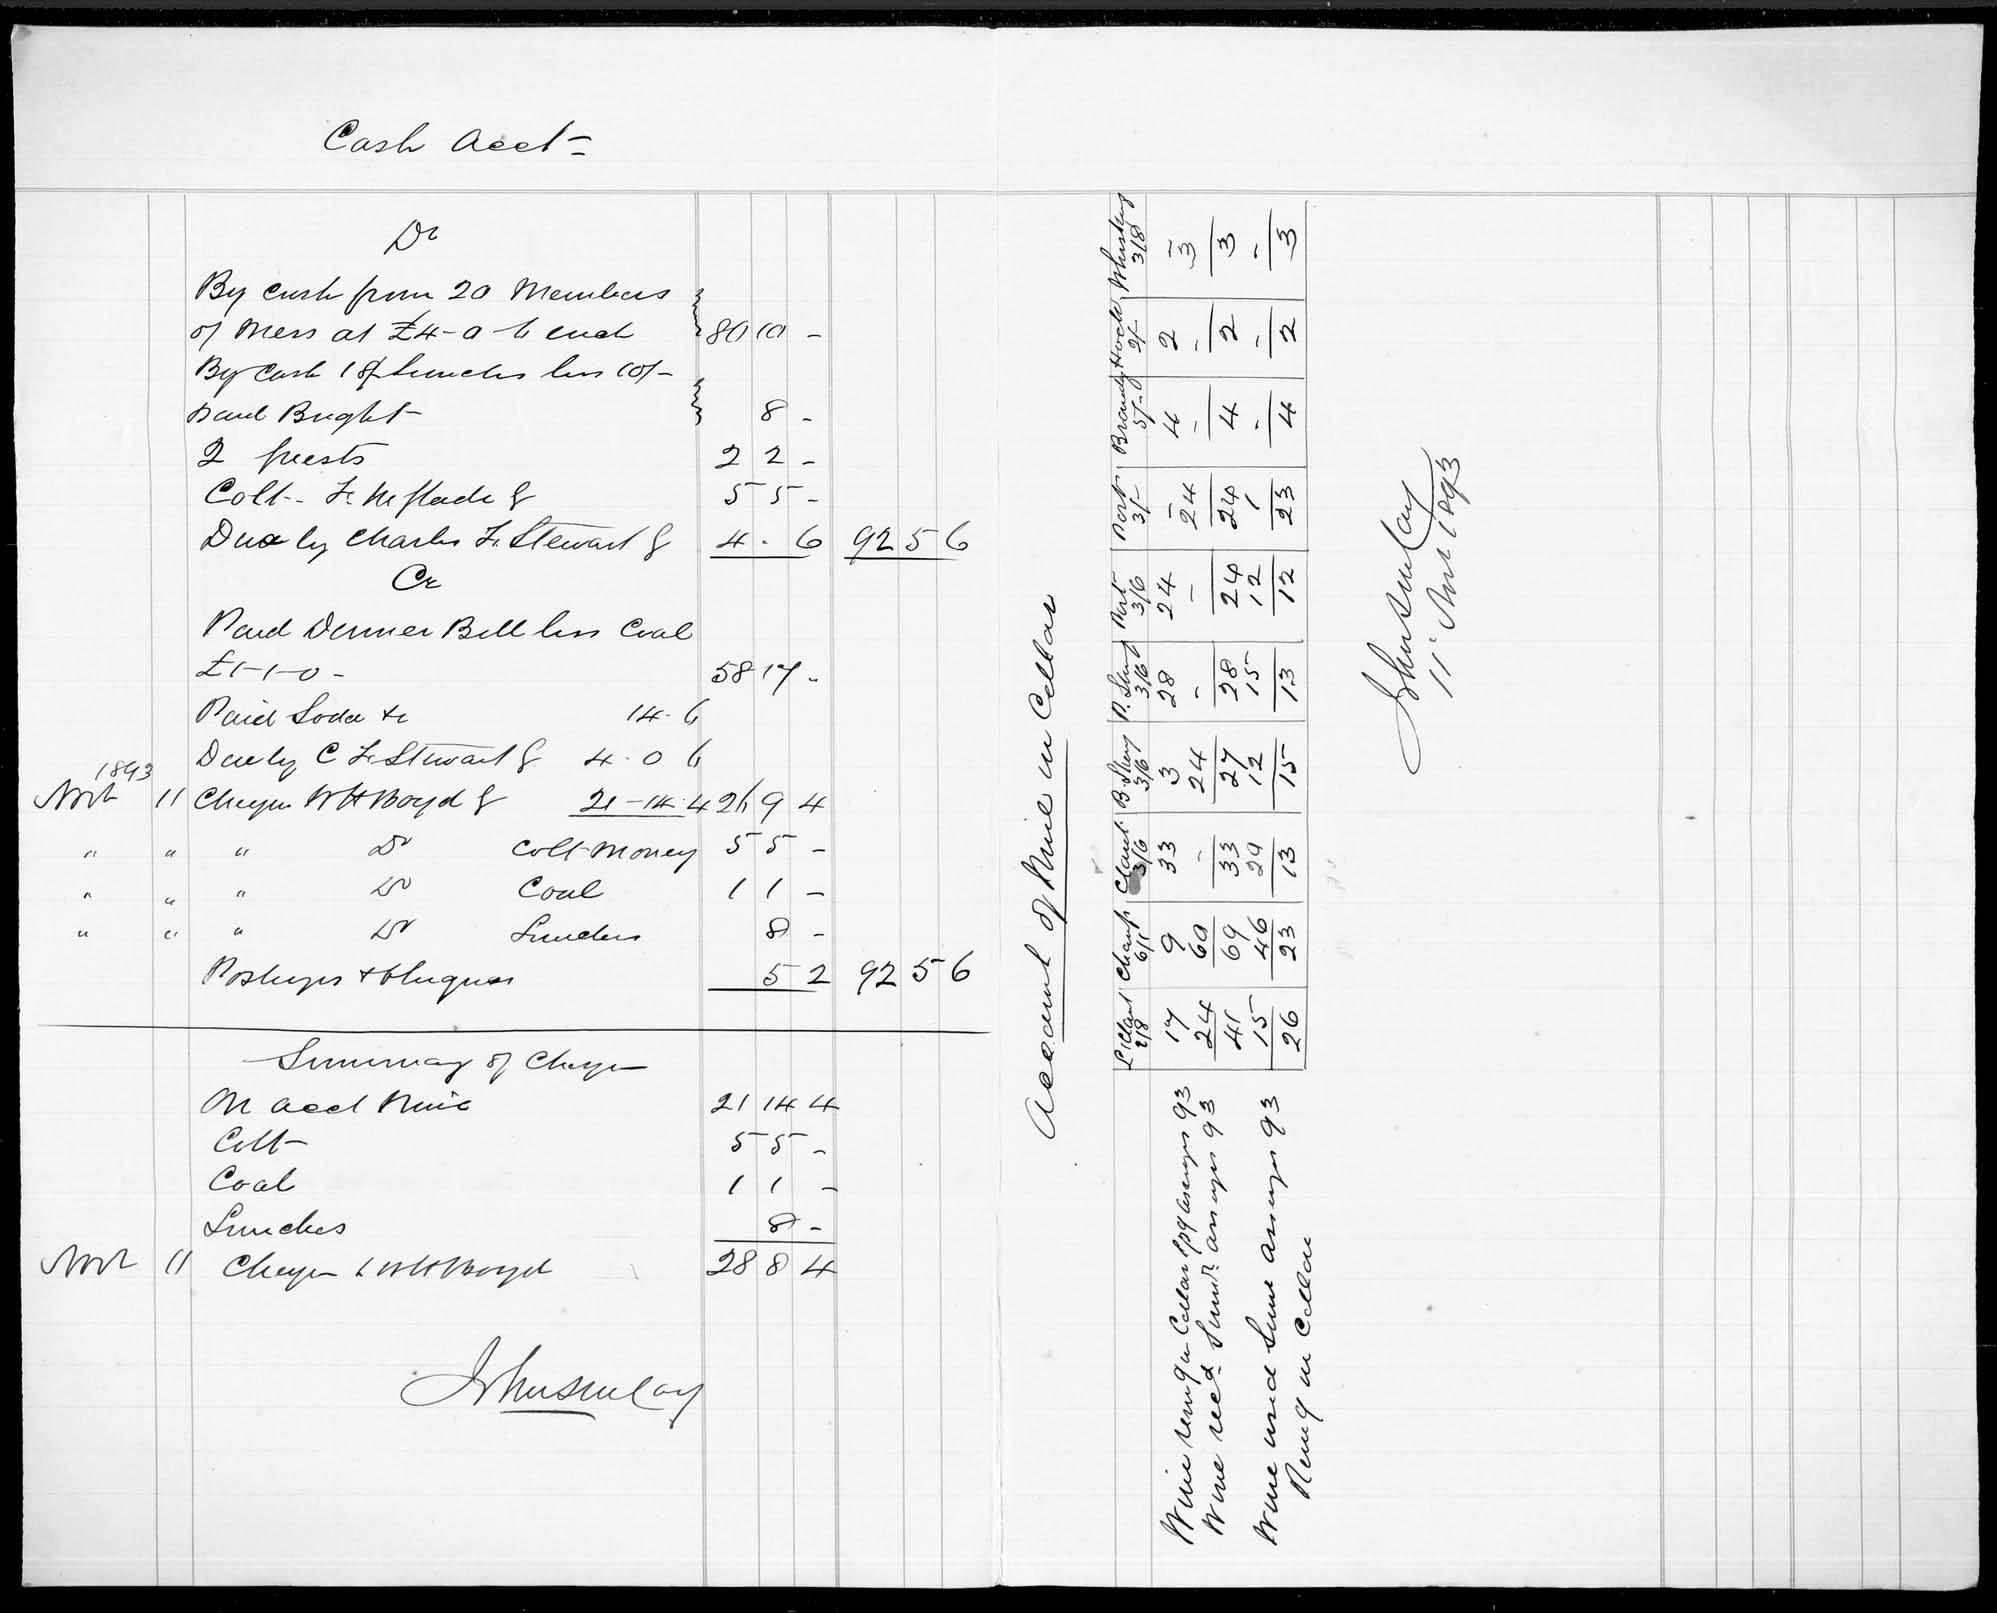 Cash Acct
Dr
By Cash from 20 Members
of Mess at £4-0-6 each 80 10 -
By Cash 18/ Lunches less 10/-
paid Bright 8 -
2 guests 2 2 -
Colt - 5 5 -
Due by Charles F. Stewart £ 4 . 6 92 5 6
Cr
Paid Dinner Bill less Coal
£1-1-0 - 58 17 -
Paid Soda &c 14. 6
Due by C F. Stewart £ 4. 0 6
1893
Novr 11 Cheque W H Boyd £ 21-14.4 26 9 4
" " " Do Colt Money 5 5 -
" " " Do Coal 1 1 -
" " " Do Lunches 8 -
Postages & Cheques 5 2 92 5 6
Summary of Cheque
On acct Wine 21 14 4
Colt 5 5 -
Coal 1 1 -
Lunches 8 -
Novr 11 Cheque to W H Boyd 28 8 4
Account of Wine in Cellar
L. Claret Champ Claret B. Sherry P. Sherry Port Port Brandy Hock Whiskey
2/8 6/1 3/6 3/6 3/6 3/6 3/- 5/- 2/- 3/8
Wine remg in Cellar assizes 93 17 9 33 3 28 24 - 4 2 -
Wine recd assizes 93 24 60 - 24 - - 24 - - 3
41 69 33 27 28 24 24 4 2 3
Wine used assizes 93 15 46 29 12 15 12 1 - - -
Remg in Cellar 26 23 13 15 13 12 23 4 2 3
11 Novr 1893